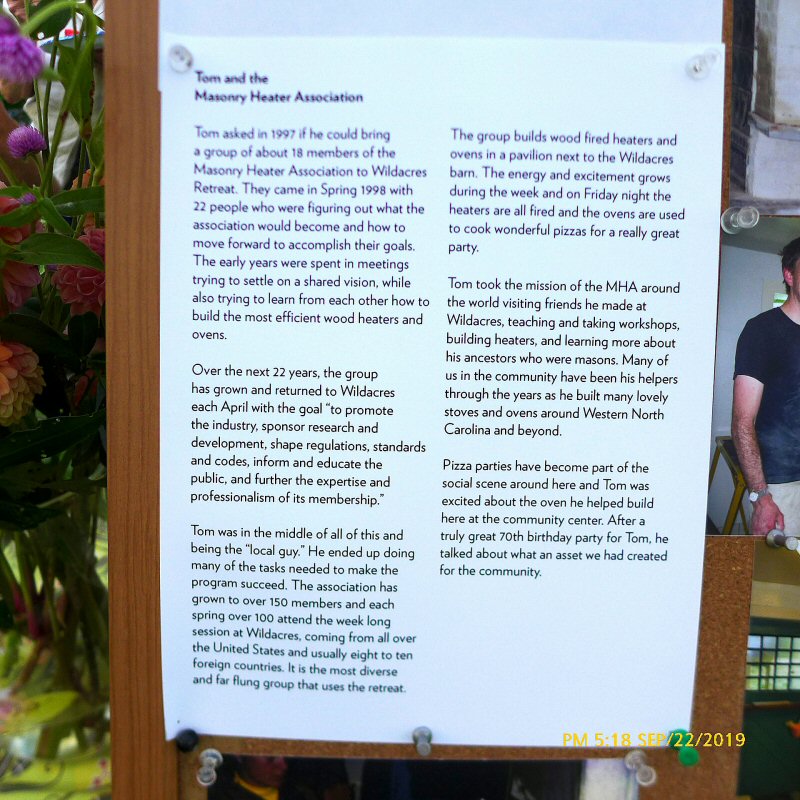 Tom and the
Masonry Heater Association
Tom asked in 1997 if he could bring
a group of about 18 members of the
Masonry Heater Association to Wildacres
Retreat. They came in Spring 1998 with
22 people who were figuring out what the
association would become and how to
move forward to accomplish their goals.
The early years were spent in meetings
trying to settle on a shared vision, while
also trying to learn from each other how to
build the most efficient wood heaters and
ovens.
Over the next 22 years, the group
has grown and returned to Wildacres
each April with the goal “to promote
the industry, sponsor research and
development, shape regulations, standards
and codes, inform and educate the
public, and further the expertise and
professionalism of its membership.”
Tom was in the middle of all of this and
being the “local guy.” He ended up doing
many of the tasks needed to make the
program succeed. The association has
grown to over 150 members and each
spring over 100 attend the week long
session at Wildacres, coming from all over
the United States and usually eight to ten
foreign countries. It is the most diverse
and far flung group that uses the retreat.
The group builds wood fired heaters and
ovens in a pavilion next to the Wildacres
barn. The energy and excitement grows
during the week and on Friday night the
heaters are all fired and the ovens are used
to cook wonderful pizzas for a really great
party.
Tom took the mission of the MHA around
the world visiting friends he made at
Wildacres, teaching and taking workshops,
building heaters, and learning more about
his ancestors who were masons. Many of
us in the community have been his helpers
through the years as he built many lovely
stoves and ovens around Western North
Carolina and beyond.
Pizza parties have become part of the
social scene around here and Tom was
excited about the oven he helped build
here at the community center. After a
truly great 70th birthday party for Tom, he
talked about what an asset we had created
for the community.
PM 5:18 SEP/22/2019